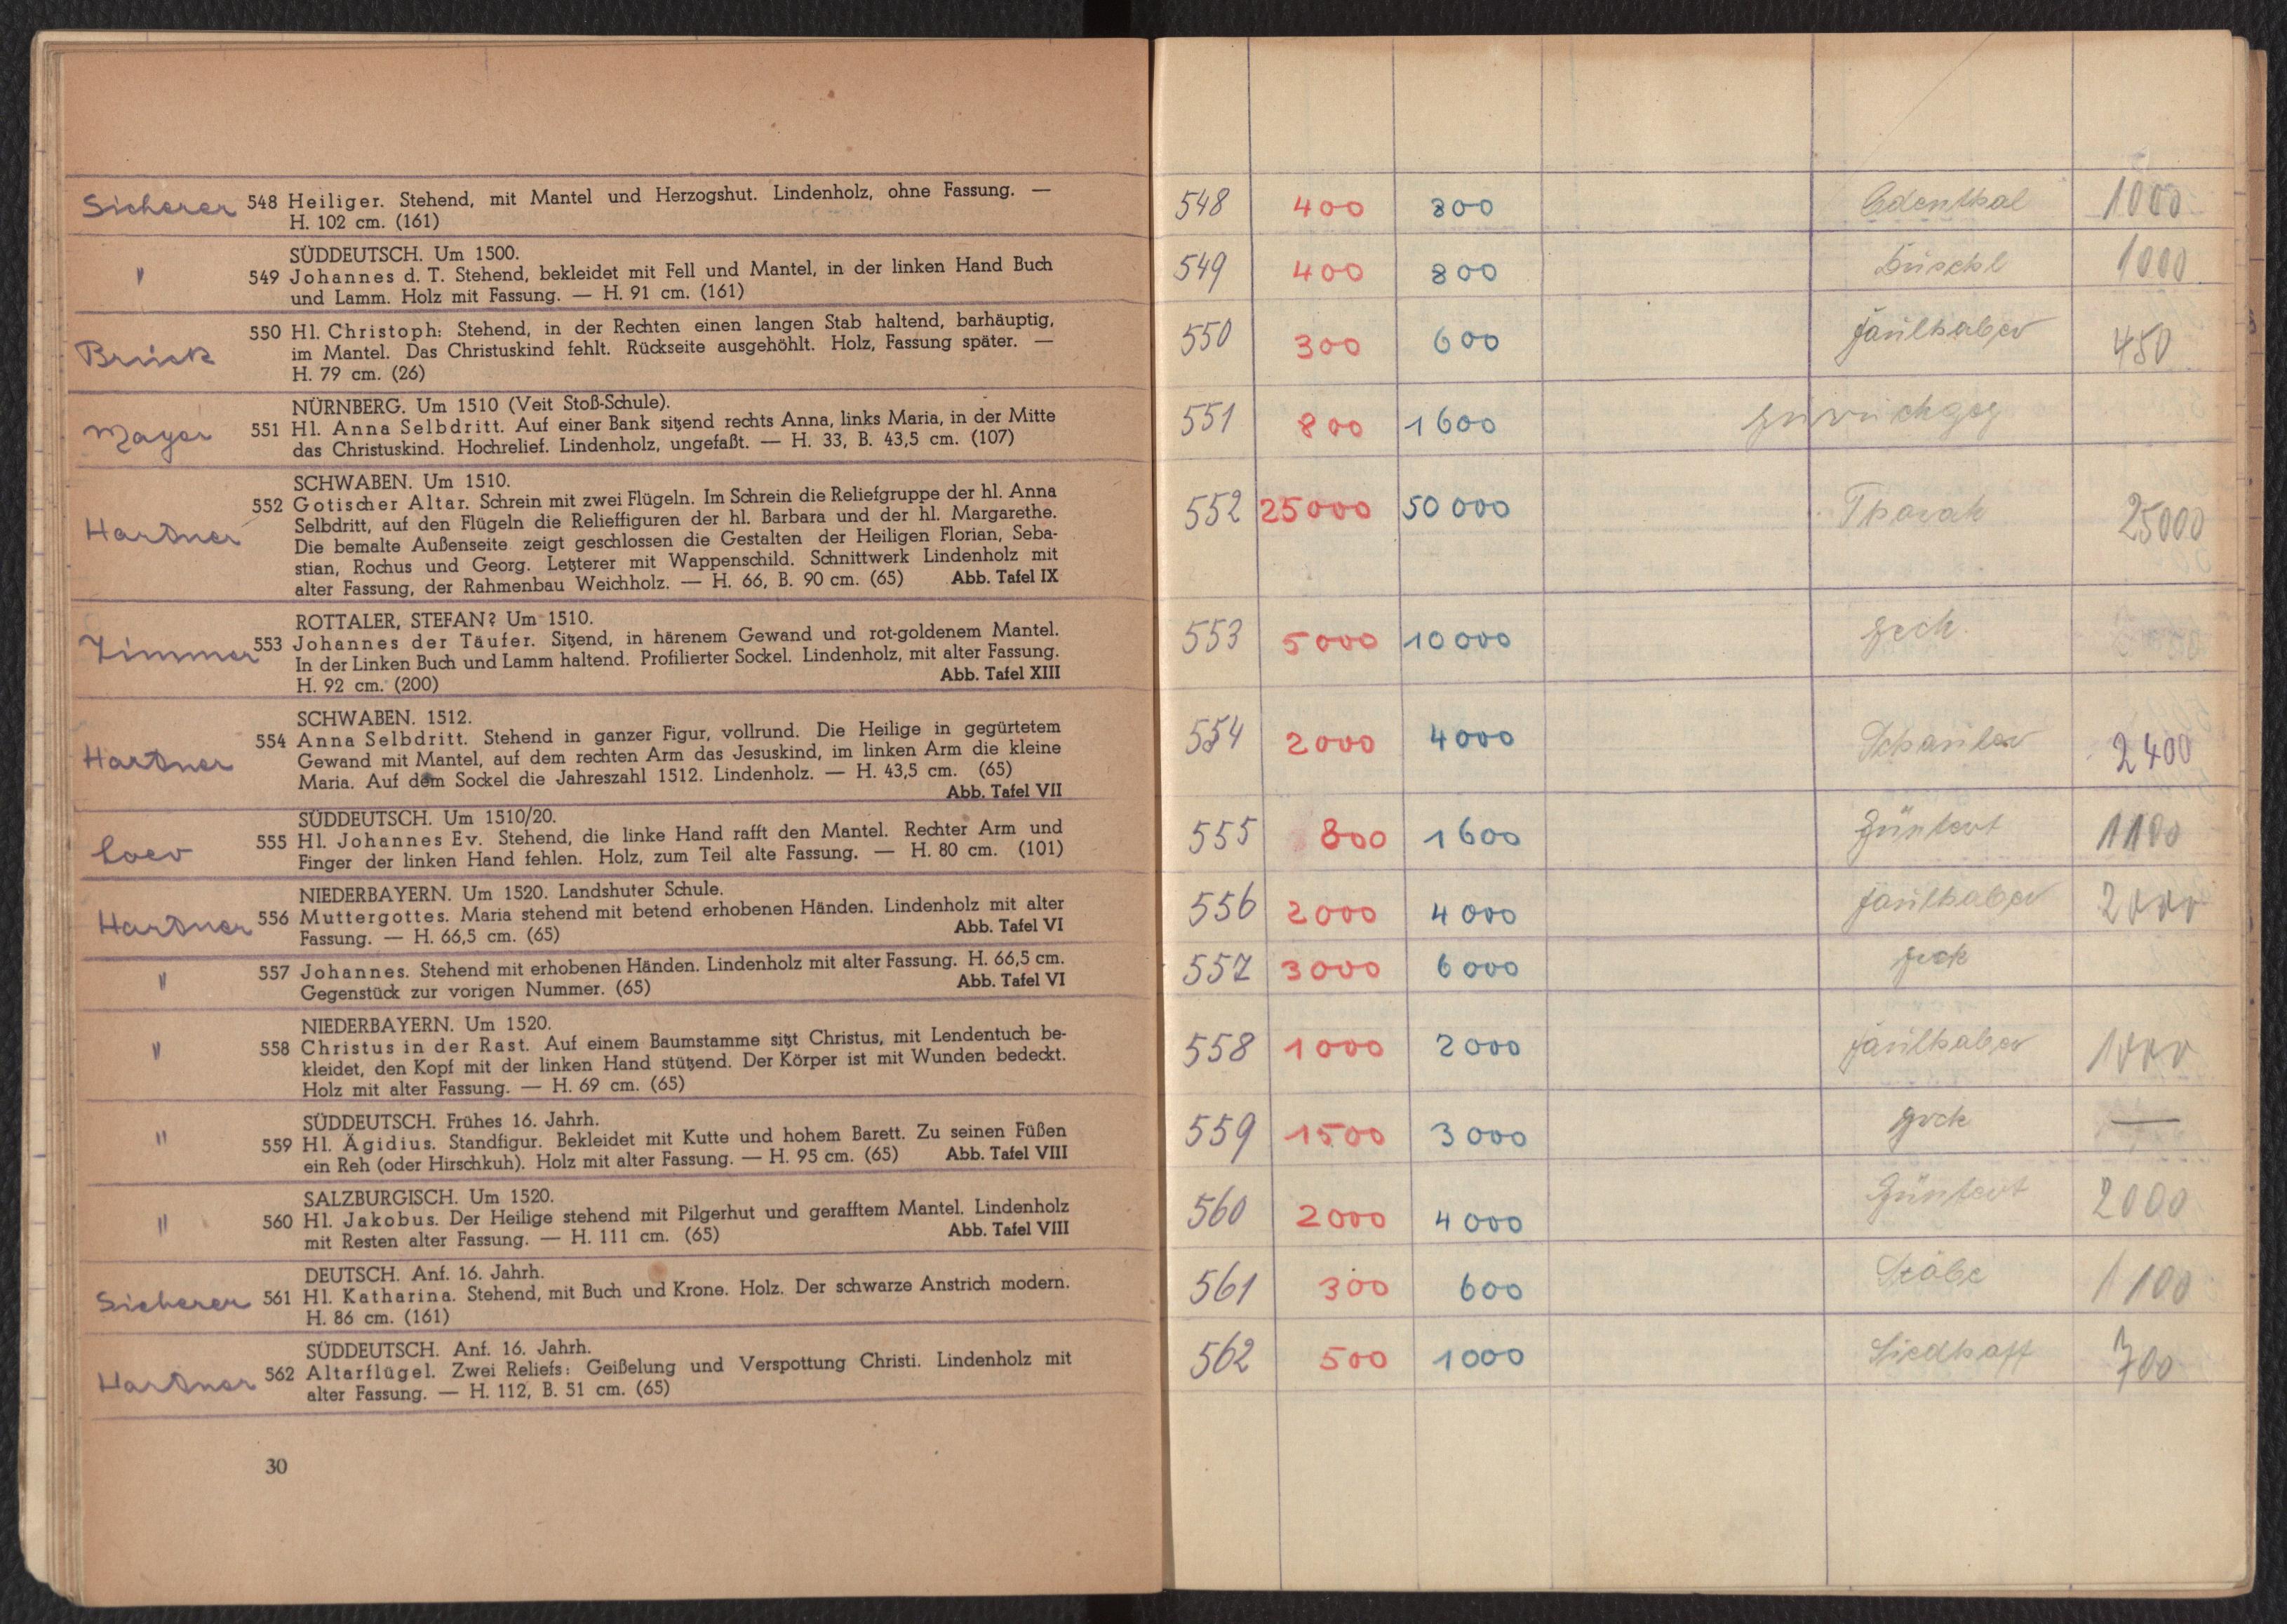 Sicherer 548 Heiliger. Stehend, mit Mantel und Herzogshut. Lindenholz, ohne Fassung. —
H. 102 cm. (161)
SÜDDEUTSCH. Um 1500.
" 549 Johannes d. T. Stehend, bekleidet mit Fell und Mantel, in der linken Hand Buch
und Lamm. Holz mit Fassung. — H. 91 cm. (161)
550 Hl. Christoph: Stehend, in der Rechten einen langen Stab haltend, barhäuptig,
im Mantel. Das Christuskind fehlt. Rückseite ausgehöhlt. Holz, Fassung später. —
H. 79 cm. (26)
NÜRNBERG. Um 1510 (Veit Stoß-Schule).
Mayer 551 Hl. Anna Selbdritt. Auf einer Bank sitzend rechts Anna, links Maria, in der Mitte
das Christuskind. Hochrelief. Lindenholz, ungefaßt. — H. 33, B. 43,5 cm. (107)
SCHWABEN. Um 1510.
552 Gotischer Altar. Schrein mit zwei Flügeln. Im Schrein die Reliefgruppe der hl. Anna
Hartner Selbdritt, auf den Flügeln die Relieffiguren der hl. Barbara und der hl. Margarethe.
Die bemalte Außenseite zeigt geschlossen die Gestalten der Heiligen Florian, Seba-
stian, Rochus und Georg. Letzterer mit Wappenschild. Schnittwerk Lindenholz mit
alter Fassung, der Rahmenbau Weichholz. — H. 66, B. 90 cm. (65) Abb. Tafel IX
ROTTALER, STEFAN? Um 1510.
Zimmer 553 Johannes der Täufer. Sitzend, in härenem Gewand und rot-goldenem Mantel.
In der Linken Buch und Lamm haltend. Profilierter Sockel. Lindenholz, mit alter Fassung.
H. 92 cm. (200) Abb. Tafel XIII
SCHWABEN. 1512.
554 Anna Selbdritt. Stehend in ganzer Figur, vollrund. Die Heilige in gegürtetem
Hartner Gewand mit Mantel, auf dem rechten Arm das Jesuskind, im linken Arm die kleine
Maria. Auf dem Sockel die Jahreszahl 1512. Lindenholz. — H. 43,5 cm. (65)
Abb. Tafel VII
SÜDDEUTSCH. Um 1510/20.
555 Hl. Johannes Ev. Stehend, die linke Hand rafft den Mantel. Rechter Arm und
Finger der linken Hand fehlen. Holz, zum Teil alte Fassung. — H. 80 cm. (101)
NIEDERBAYERN. Um 1520. Landshuter Schule.
Hartner 556 Muttergottes. Maria stehend mit betend erhobenen Händen. Lindenholz mit alter
Fassung. — H. 66,5 cm. (65) Abb. Tafel VI
" 557 Johannes. Stehend mit erhobenen Händen. Lindenholz mit alter Fassung. H. 66,5 cm.
Gegenstück zur vorigen Nummer. (65) Abb. Tafel VI
NIEDERBAYERN. Um 1520.
" 558 Christus in der Rast. Auf einem Baumstamme sitzt Christus, mit Lendentuch be-
kleidet, den Kopf mit der linken Hand stützend. Der Körper ist mit Wunden bedeckt.
Holz mit alter Fassung. — H. 69 cm. (65)
SÜDDEUTSCH. Frühes 16. Jahrh.
" 559 Hl. Ägidius. Standfigur. Bekleidet mit Kutte und hohem Barett. Zu seinen Füßen
ein Reh (oder Hirschkuh). Holz mit alter Fassung. — H. 95 cm. (65) Abb. Tafel VIII
SALZBURGISCH. Um 1520.
" 560 Hl. Jakobus. Der Heilige stehend mit Pilgerhut und gerafftem Mantel. Lindenholz
mit Resten alter Fassung. — H. 111 cm. (65) Abb. Tafel VIII
DEUTSCH. Anf. 16. Jahrh.
Sicherer 561 Hl. Katharina. Stehend, mit Buch und Krone. Holz. Der schwarze Anstrich modern.
H. 86 cm. (161)
SÜDDEUTSCH. Anf. 16. Jahrh.
Hartner 562 Altarflügel. Zwei Reliefs: Geißelung und Verspottung Christi. Lindenholz mit
alter Fassung. — H. 112, B. 51 cm. (65)
30
548 400 800 Odenthal 1000
549 400 800 1000
550 300 600 Faulhaber 450
551 800 1600 zurückgez
552 25000 50000 Thorak 25000
553 5000 10000
554 2000 4000 2400
555 800 1600 Güntert 1100
556 2000 4000 Faulhaber 2000
557 3000 6000
558 1000 2000 Faulhaber 1000
559 1500 3000 —
560 2000 4000 Güntert 2000
561 300 600 1100
562 500 1000 700